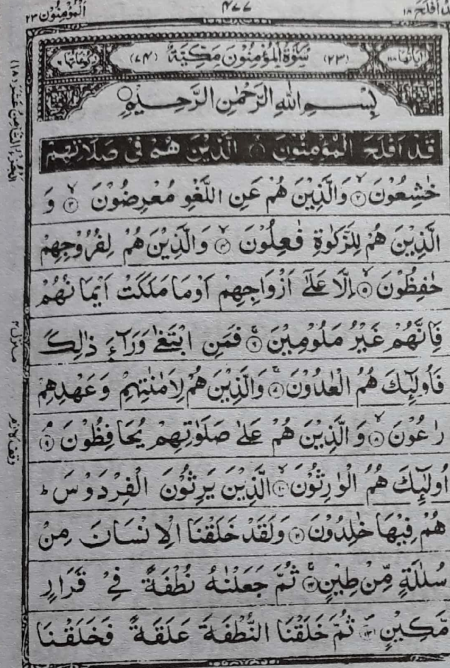 قد افلح ١٨
٤٧٧
الْمُؤْمِنُوْن ٢٣
(٢٣) سُوْرَةُ الْمُؤْمِنُوْنَ مَكِّيَّةٌ (٧٤)
بِسْمِ اللهِ الرَّحْمٰنِ الرَّحِيْمِ
قَدْ اَفْلَحَ الْمُؤْمِنُوْنَ ۙ۱ الَّذِيْنَ هُمْ فِيْ صَلَاتِهِمْ
خٰشِعُوْنَ ۙ۲ وَالَّذِيْنَ هُمْ عَنِ اللَّغْوِ مُعْرِضُوْنَ ۙ۳ وَ
الَّذِيْنَ هُمْ لِلزَّكٰوةِ فٰعِلُوْنَ ۙ۴ وَالَّذِيْنَ هُمْ لِفُرُوْجِهِمْ
حٰفِظُوْنَ ۙ۵ اِلَّا عَلٰٓى اَزْوَاجِهِمْ اَوْمَا مَلَكَتْ اَيْمَانُهُمْ
فَاِنَّهُمْ غَيْرُ مَلُوْمِيْنَ ۚ۶ فَمَنِ ابْتَغٰى وَرَآءَ ذٰلِكَ
فَاُولٰٓئِكَ هُمُ الْعٰدُوْنَ ۚ۷ وَالَّذِيْنَ هُمْ لِاَمٰنٰتِهِمْ وَعَهْدِهِمْ
رٰعُوْنَ ۙ۸ وَالَّذِيْنَ هُمْ عَلٰى صَلَوٰتِهِمْ يُحَافِظُوْنَ ۘ۹
اُولٰٓئِكَ هُمُ الْوٰرِثُوْنَ ۙ۱۰ الَّذِيْنَ يَرِثُوْنَ الْفِرْدَوْسَ ؕ
هُمْ فِيْهَا خٰلِدُوْنَ ۱۱ وَلَقَدْ خَلَقْنَا الْاِنْسَانَ مِنْ
سُلٰلَةٍ مِّنْ طِيْنٍ ۚ۱۲ ثُمَّ جَعَلْنٰهُ نُطْفَةً فِيْ قَرَارٍ
مَّكِيْنٍ ۱۳ ثُمَّ خَلَقْنَا النُّطْفَةَ عَلَقَةً فَخَلَقْنَا